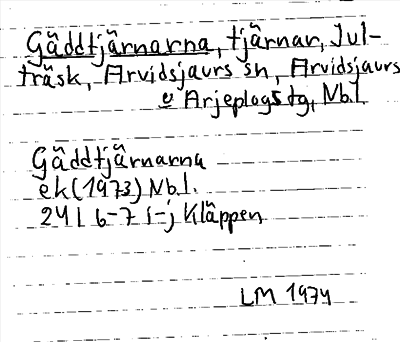 Gäddtjärnarna, tjärnar, Jul-
träsk, Arvidsjaurs sn, Arvidsjaurs
o Arjeplogs tg, Nb.l.
Gäddtjärnarna
ek (1973) Nb.l.
24I 6-7 i-j Kläppen
LM 1974